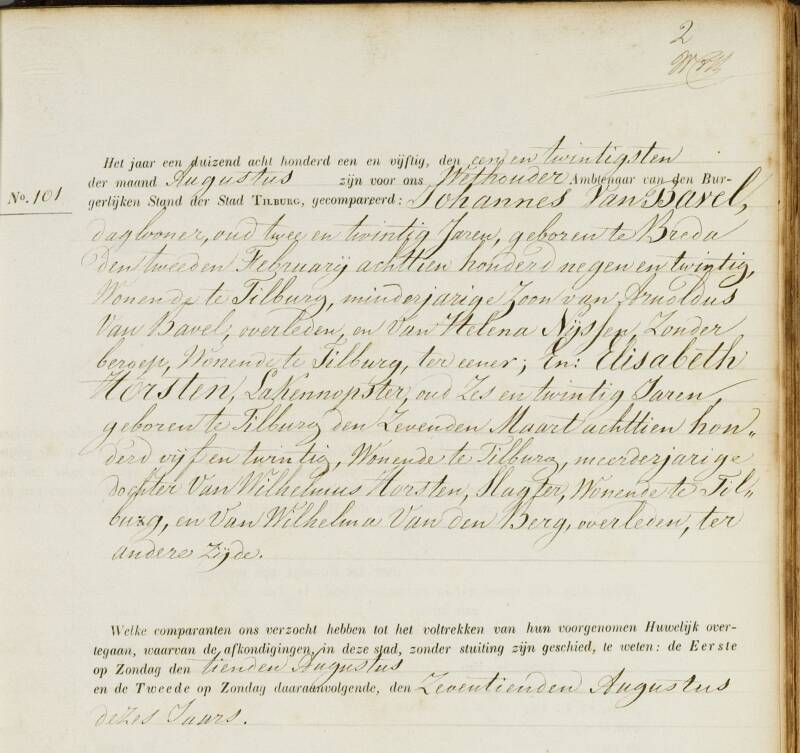 2
No. 101
Het jaar een duizend acht honderd een en vijftig, den een en twintigsten
der maand Augustus zijn voor ons Wethouder Ambtenaar van den Bur-
gerlijken Stand der Stad TILBURG, gecompareerd: Johannes Van Bavel,
dagloner, oud twee en twintig Jaren, geboren te Breda
den tweeden Februarij achttien honderd negen en twintig,
Wonende te Tilburg, minderjarige Zoon van Arnoldus
Van Bavel, overleden, en Van Helena Nijssen, Zonder
beroep, Wonende te Tilburg, ter eener; En: Elisabeth
Horsten, Lakennopster, oud Zes en twintig Jaren,
geboren te Tilburg den Zevenden Maart achttien hon„
derd vijf en twintig, Wonende te Tilburg, meerderjarige
dochter Van Wilhelmus Horsten, Slagter, Wonende te Til„
burg, en Van Wilhelma Van den Berg, overleden, ter
andere zijde.
Welke comparanten ons verzocht hebben tot het voltrekken van hun voorgenomen Huwelijk over-
tegaan, waarvan de afkondigingen, in deze stad, zonder stuiting zijn geschied, te weten: de Eerste
op Zondag den tienden Augustus
en de Tweede op Zondag daaraanvolgende, den Zeventienden Augustus
dezes Jaars.